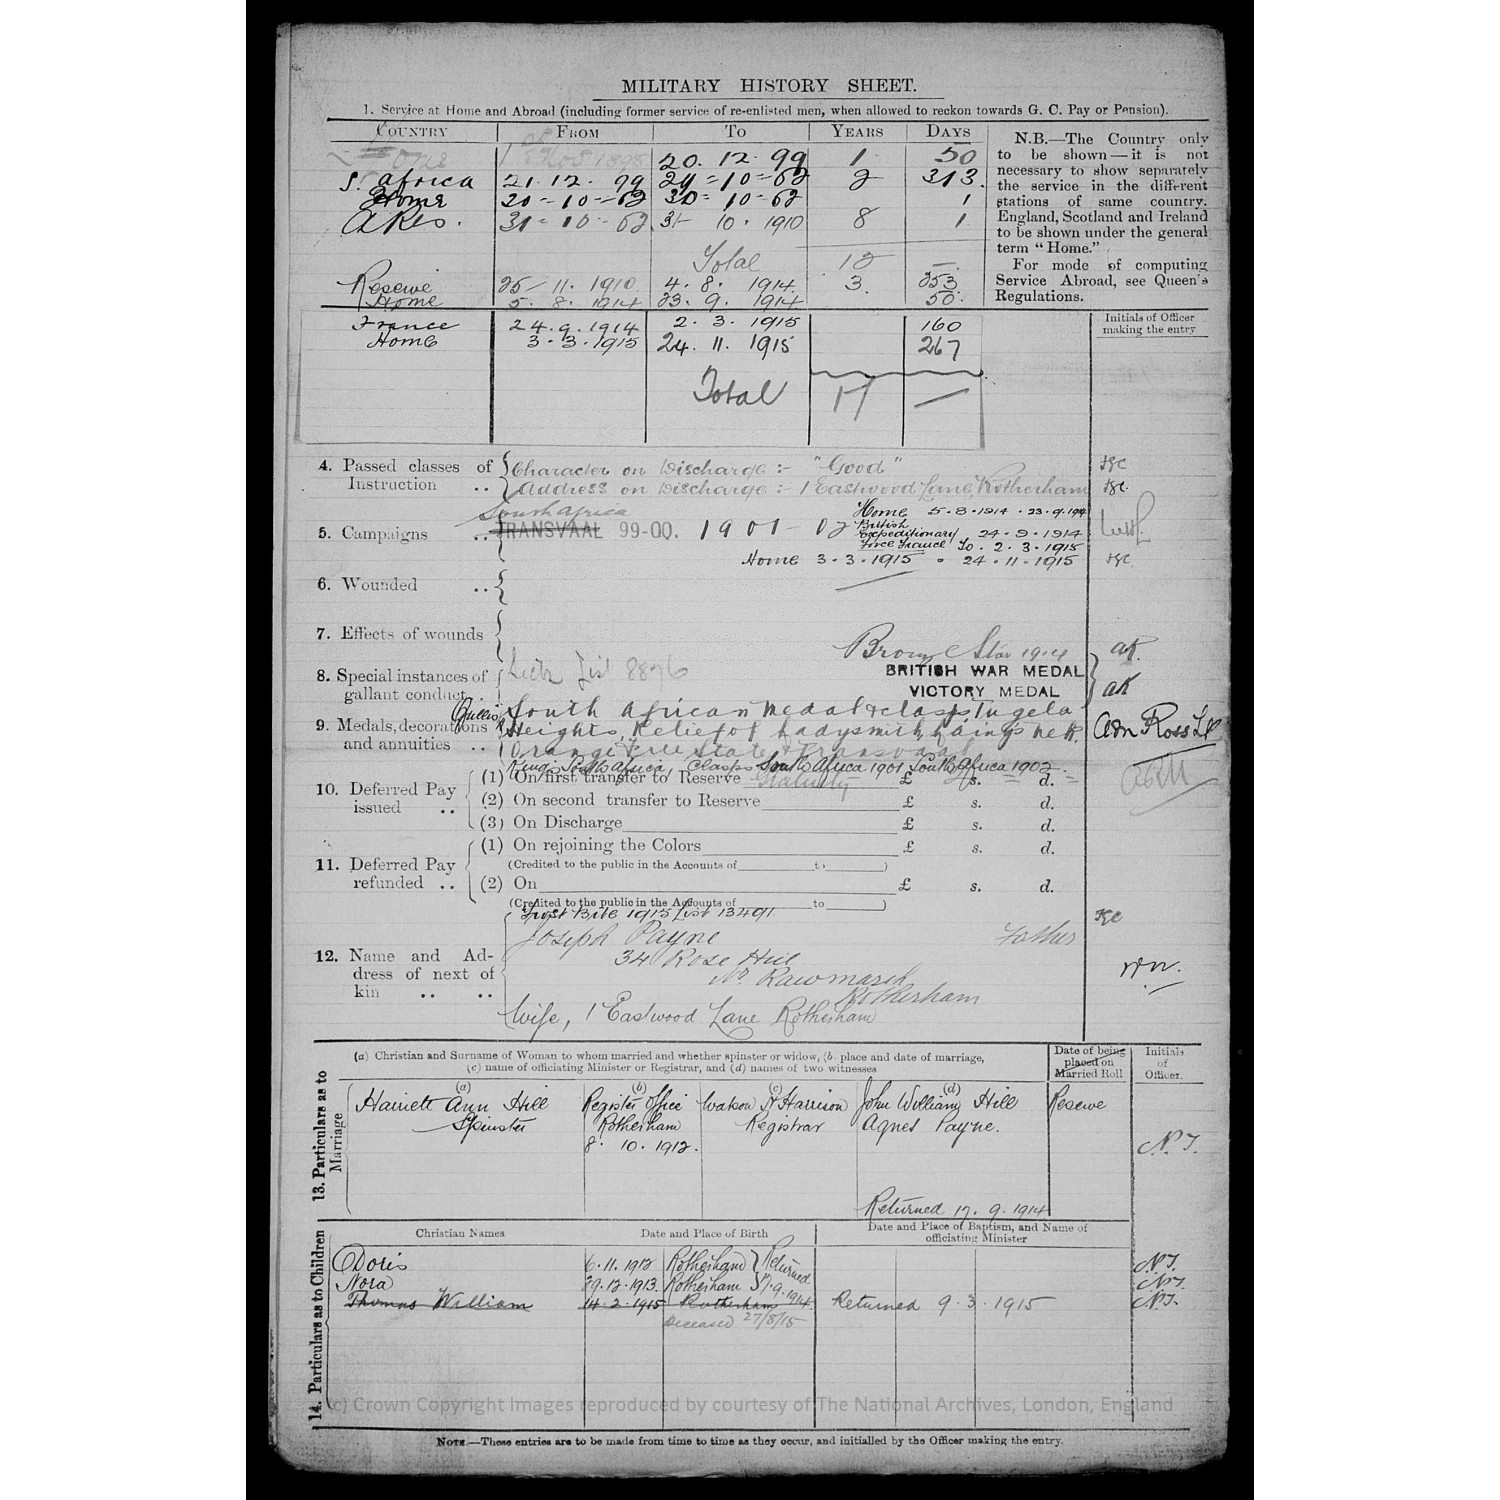 MILITARY HISTORY SHEET.
1. Service at Home and Abroad (including former service of re-enlisted men, when allowed to reckon towards G. C. Pay or Pension).
COUNTRY FROM TO YEARS DAYS
Home 1898 20. 12. 99 1 50
S. Africa 21. 12. 99 29 = 10 = 02 2 313.
Home 30 = 10 = 02 30 = 10 = 02 1
A Res. 31 = 10 = 02 31 10. 1910 8 1
Total 12 —
Reserve 25 / 11. 1910 4. 8. 1914 3. 253
Home 5. 8. 1914 23. 9. 1914 50.
N.B.—The Country only
to be shown—it is not
necessary to show separately
the service in the different
stations of same country.
England, Scotland and Ireland
to be shown under the general
term “Home.”
For mode of computing
Service Abroad, see Queen's
Regulations.
France 24.9.1914 2. 3. 1915 160
Home 3.3.1915 24. 11. 1915 267
Total 17 —
Initials of Officer
making the entry
4. Passed classes of Instruction .. Character on Discharge :- "Good"
Address on Discharge :- 1 Eastwood Lane, Rotherham
South Africa
5. Campaigns .. TRANSVAAL 99-00. 1901-02
Home 5.8.1914 . 23.9.1914
British
Expeditionary 24.9.1914
Force France To. 2.3.1915
Home 3.3.1915 . 24.11.1915
6. Wounded ..
7. Effects of wounds
Bronze Star 1914
8. Special instances of gallant conduct .. List 8876
BRITISH WAR MEDAL
VICTORY MEDAL
AK
9. Medals, decorations and annuities .. Queen's South African Medal & clasps Tugela
Heights, Relief of Ladysmith, Laing's Nek.
Orange Free State & Transvaal
King's South Africa, Clasps South Africa 1901 South Africa 1902
10. Deferred Pay issued ..
(1) On first transfer to Reserve Gratuity £ s. d.
(2) On second transfer to Reserve £ s. d.
(3) On Discharge £ s. d.
11. Deferred Pay refunded ..
(1) On rejoining the Colors £ s. d.
(Credited to the public in the Accounts of to )
(2) On £ s. d.
(Credited to the public in the Accounts of to )
Frost Bite 1915 List 13491
12. Name and Address of next of kin .. .. Joseph Payne Father
34 Rose Hill
Nr. Rawmarsh
Rotherham
Wife, 1 Eastwood Lane Rotherham
(a) Christian and Surname of Woman to whom married and whether spinster or widow, (b) place and date of marriage,
(c) name of officiating Minister or Registrar, and (d) names of two witnesses
Date of being
placed on
Married Roll
Initials
of
Officer.
13. Particulars as to Marriage
(a) (b) (c) (d)
Harriett Ann Hill Register Office Watson N Harrison John William Hill Reserve
Spinster Rotherham Registrar Agnes Payne.
8. 10. 1912. N.T.
Returned 17. 9. 1914
14. Particulars as to Children
Christian Names Date and Place of Birth Date and Place of Baptism, and Name of
officiating Minister
Doris 6.11.1912 Rotherham Returned N.T.
Nora 29.12.1913. Rotherham 17.9.1914 N.T.
Thomas William 14.2.1915 Rotherham Returned 9.3.1915 N.T.
Deceased 27/8/15
(c) Crown Copyright Images reproduced by courtesy of The National Archives, London, England
NOTE.—These entries are to be made from time to time as they occur, and initialled by the Officer making the entry.